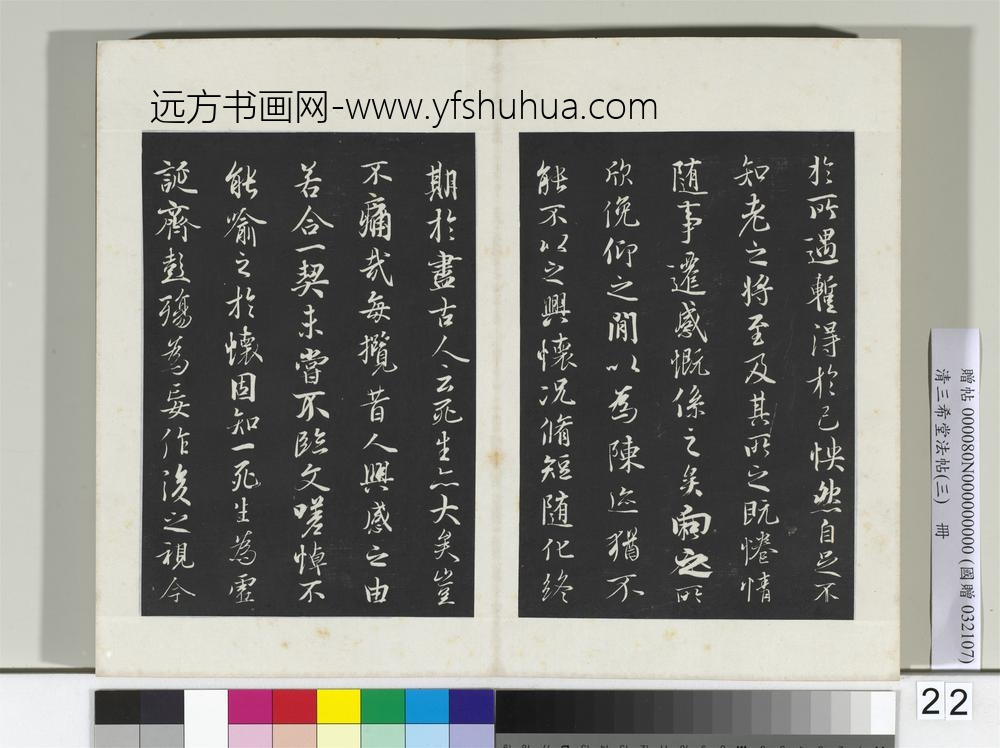 远方书画网-www.yfshuhua.com
於所遇暫得於己怏然自足不
知老之將至及其所之既惓情
隨事遷感慨係之矣向之所
欣俛仰之閒以為陳迹猶不
能不以之興懷況脩短隨化終
期於盡古人云死生亦大矣豈
不痛哉每攬昔人興感之由
若合一契未嘗不臨文嗟悼不
能喻之於懷固知一死生為虛
誕齊彭殤為妄作後之視今
贈帖 000080N000000000 (國贈 032107)
清三希堂法帖(三) 冊
22